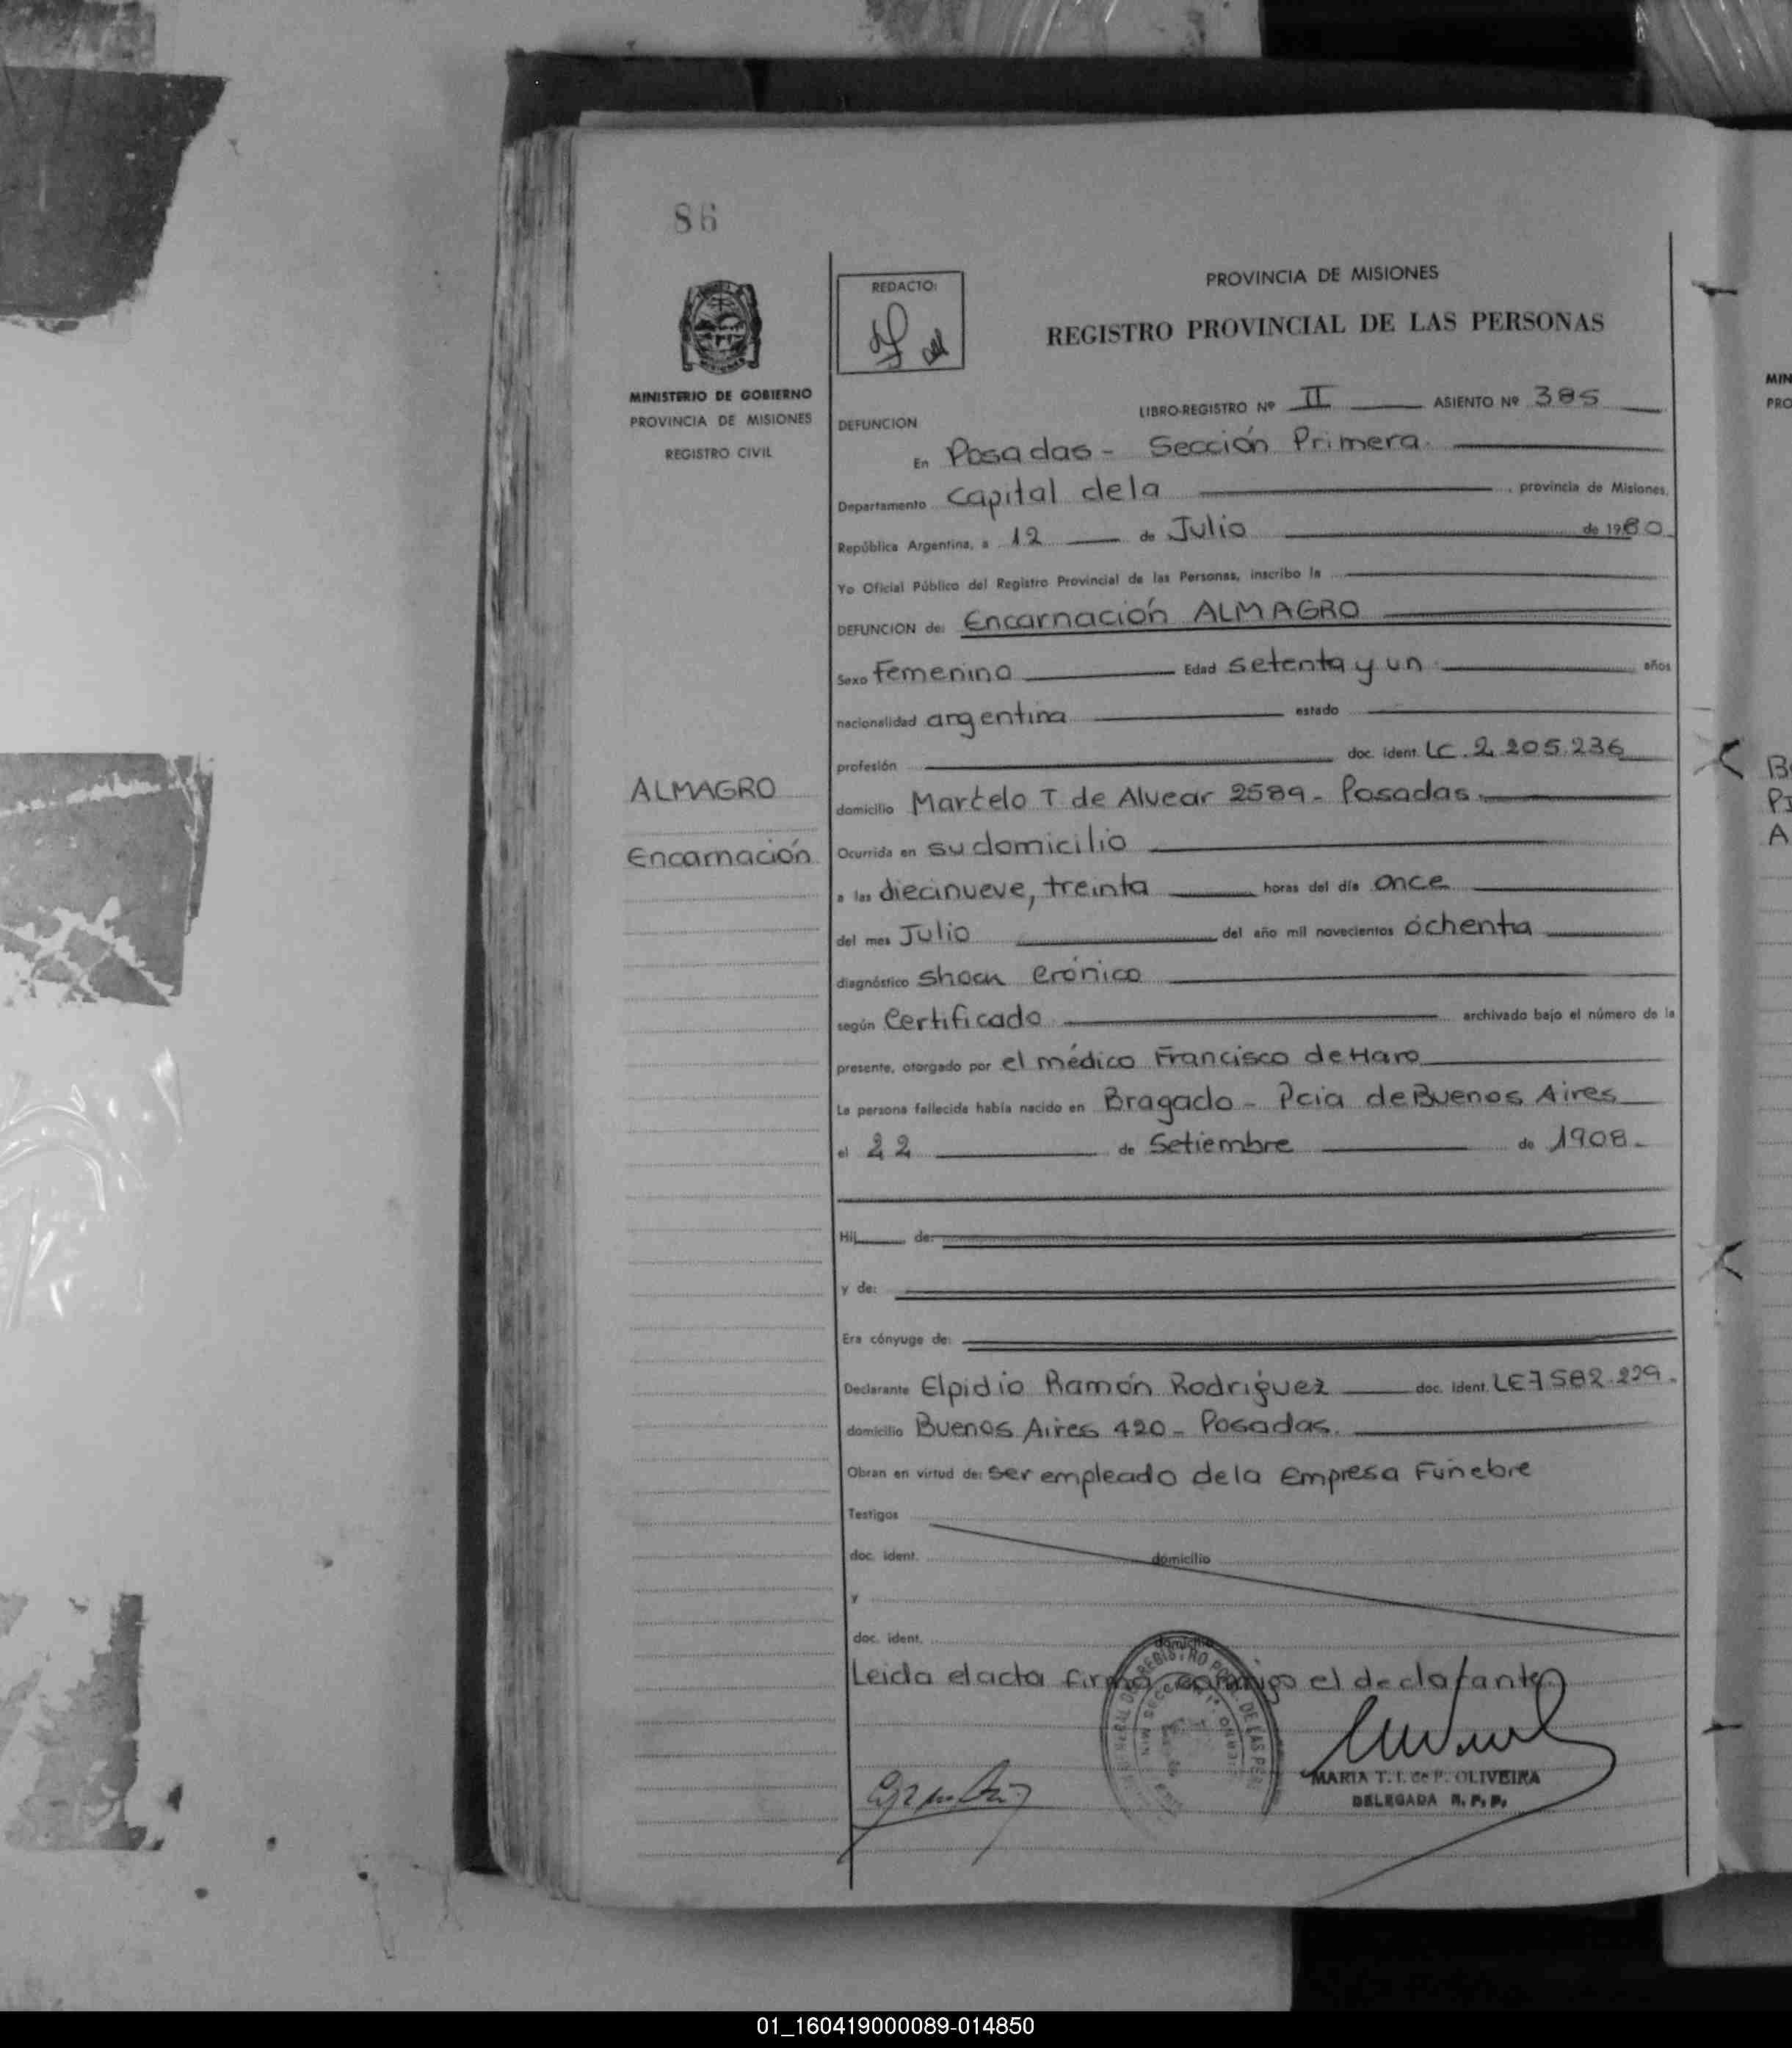 86
REDACTO:
PROVINCIA DE MISIONES
REGISTRO PROVINCIAL DE LAS PERSONAS
MINISTERIO DE GOBIERNO
PROVINCIA DE MISIONES
REGISTRO CIVIL
LIBRO-REGISTRO Nº II ASIENTO Nº 385
DEFUNCION
En Posadas - Sección Primera.
Departamento Capital dela , provincia de Misiones,
República Argentina, a 12 de Julio de 1980
Yo Oficial Público del Registro Provincial de las Personas, inscribo la
DEFUNCION de: Encarnación ALMAGRO
Sexo Femenino Edad setenta y un años
nacionalidad argentina estado
profesión doc. ident. LC. 2.205.236
ALMAGRO
domicilio Marcelo T. de Alvear 2589 - Posadas.
Encarnación
Ocurrida en su domicilio
a las diecinueve, treinta horas del día once
del mes Julio del año mil novecientos ochenta
diagnóstico shock crónico
según Certificado archivado bajo el número de la
presente, otorgado por el médico Francisco de Haro
La persona fallecida había nacido en Bragado - Pcia de Buenos Aires
el 22 de Setiembre de 1908.-
Hij de:
y de:
Era cónyuge de:
Declarante Elpidio Ramón Rodríguez doc. ident. LE 7582.229.-
domicilio Buenos Aires 420 - Posadas.
Obran en virtud de: ser empleado de la Empresa Fúnebre
Testigos
doc. ident. domicilio
y
doc. ident. domicilio
Leida el acta firma conmigo el declarante.
MARIA T. I. de P. OLIVEIRA
DELEGADA R. P. P.
MIN
PRO
01_160419000089-014850